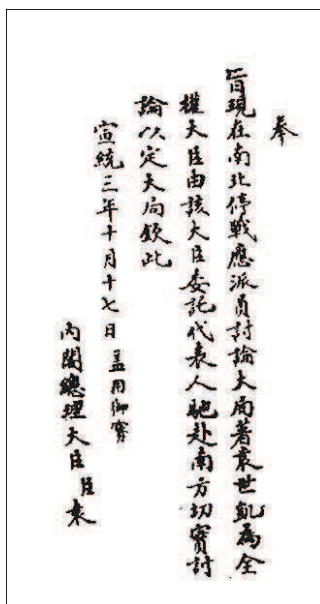 奉
旨現在南北停戰應派員討論大局著袁世凱為全
權大臣由該大臣委託代表人馳赴南方切實討
論以定大局欽此
宣統三年十月十七日 蓋用御寶
內閣總理大臣臣袁